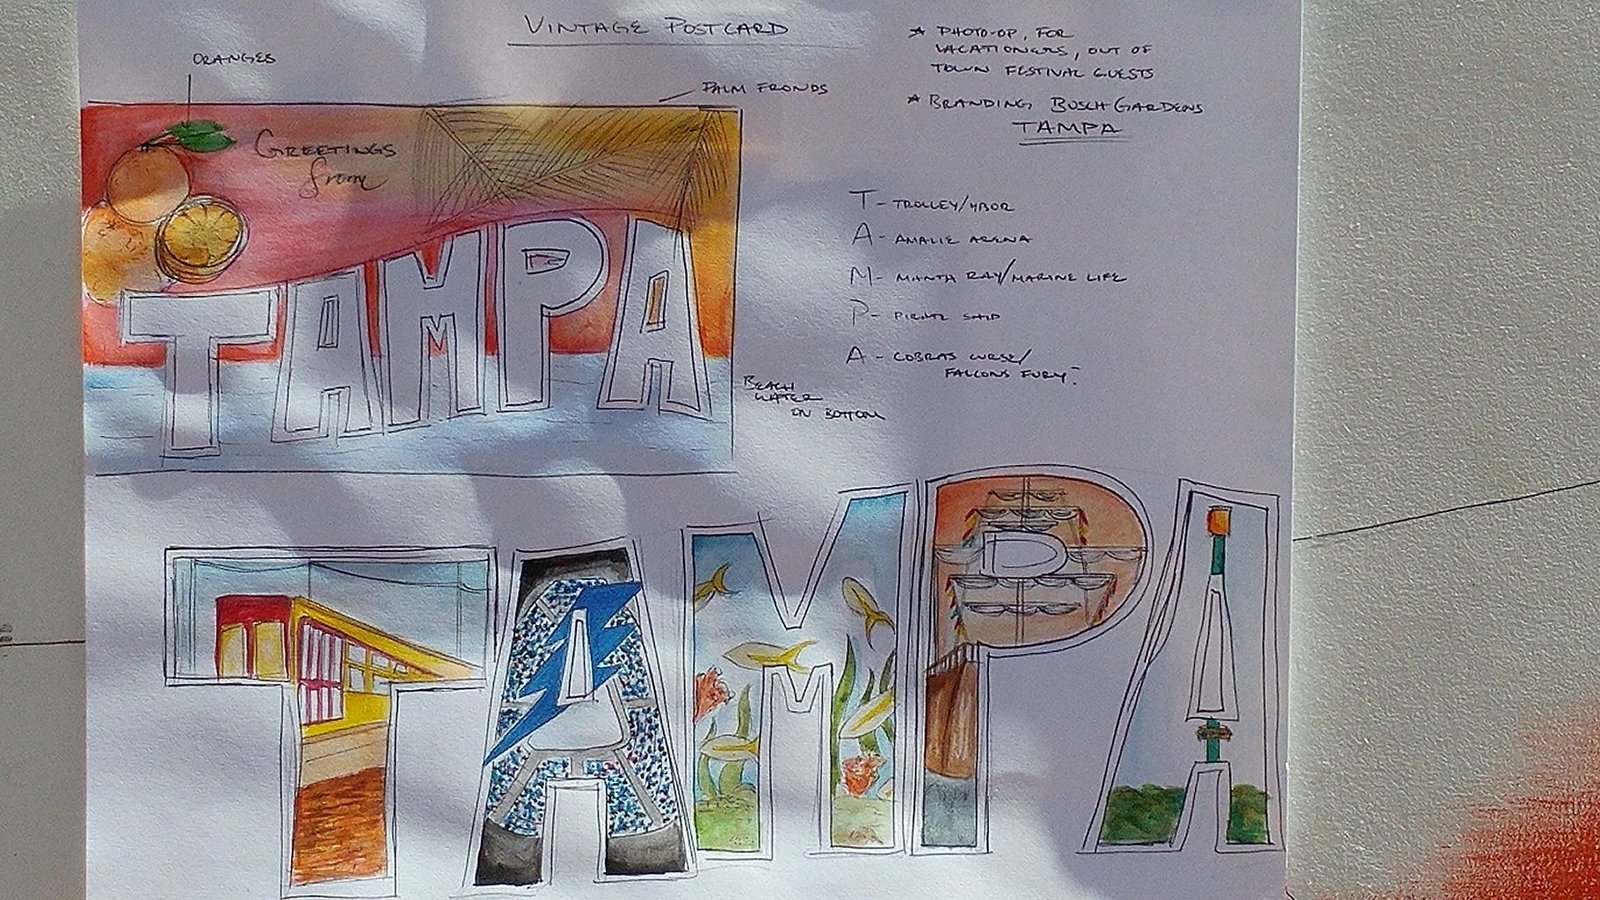 VINTAGE POSTCARD
ORANGES
PALM FRONDS
GREETINGS
from
TAMPA
BEACH
WATER
ON BOTTOM
★ PHOTO-OP, FOR
VACATIONERS, OUT OF
TOWN FESTIVAL GUESTS
★ BRANDING BUSCH GARDENS
TAMPA
T- TROLLEY/YBOR
A- AMALIE ARENA
M- MANTA RAY/MARINE LIFE
P- PIRATE SHIP
A - COBRAS CURSE/
FALCONS FURY
TAMPA